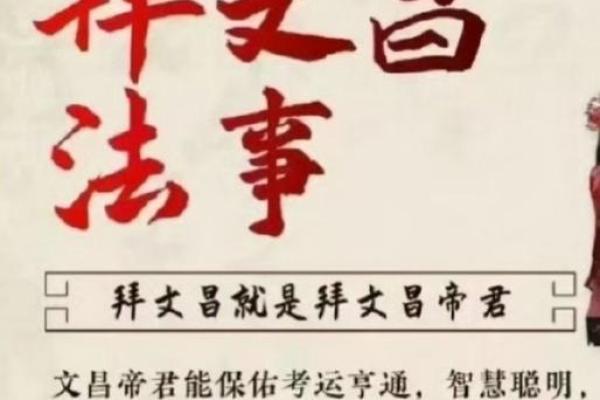 拜文昌
法事
拜文昌就是拜文昌帝君
文昌帝君能保佑考运亨通，智慧聪明，